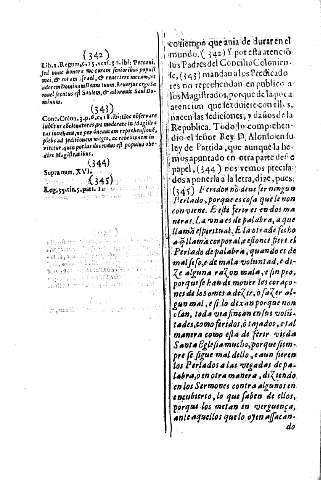 (342)
Lib. 1. Regum, c. 15. vers. 30. ibi: Peccavi,
sed nunc honora me coram senioribus populi
mei, & coram Israel, & revertere mecum, ut
adorem Dominum Deum tuum. Reversus ergo Sa-
muel secutus est Saulem, & adoravit Saul Do-
minum.
(343)
Conc. Colon. 3. p. 6. c. 18. districtè observare
iubemus
plebs ad seditionem
dire Magistratibus.
(344)
Supra num. XVI.
(345)
Leg. 55. tit. 5. part. 1.
tiempo que avia de durar en el
mundo. (342) Y por esta atenciõ
los Padres del Concilio Colonien-
se, (343) mandan a los Predicado-
res no reprehendan en publico a
los Magistrados, porque de la poca
atencion que se tuviere con ellos,
nacen las sediciones, y daños de la
Republica. Todo lo comprehen-
dio el señor Rey D. Alonso en su
ley de Partida, que aunque la he-
mos apuntado en otra parte deste
papel, (344) nos vemos precisa-
dos a ponerla a la letra, dize, pues:
(345) Ferir no deve ser ningun
Perlado, porque es cosa que le non
conviene. E este ferir es en dos ma-
neras. La una es de palabra, a que
llamã espiritual. E la otra de fecho
a q̃ llamã corporal, e estonce fiere el
Perlado de palabra, quando es de
mal seso, e de mala voluntad, e di-
ze alguna razon mala, e sin pro,
porque se han de mover los coraço-
nes de los omes a dezir, o fazer al-
gun mal, e si lo dixan porque non
olan, toda via fincan en sus volũ-
tades, como feridos, ò tajados, e tal
manera como esta de ferir vieda
Santa Eglesia mucho, porque siem-
pre se sigue mal dello, e aun fieren
los Perlados a las vegadas de pa-
labra, ò en otra manera, diziendo
en los Sermones contra algunos en
encubierto, lo que saben de ellos,
porque los metan en verguença,
ante aquellos que lo oyen assacan-
do